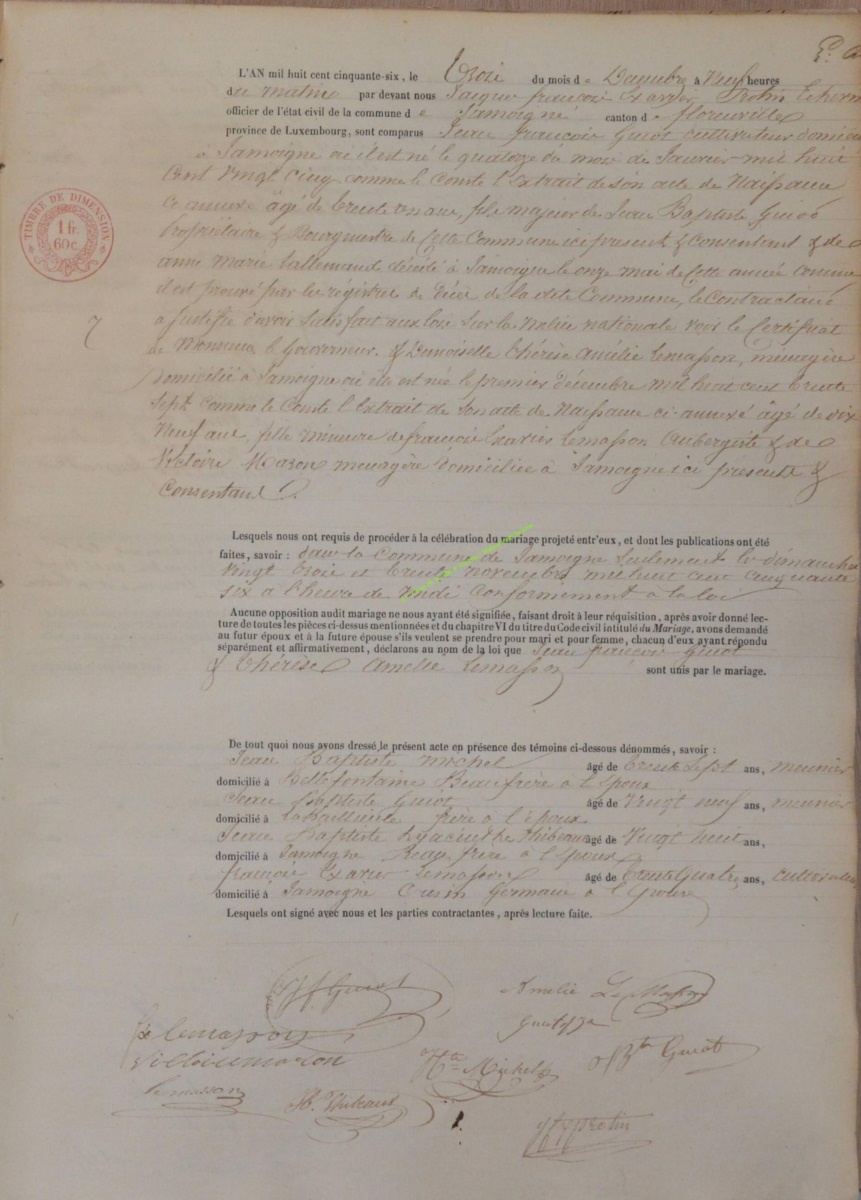 L'AN mil huit cent cinquante-six, le Trois du mois de Decembre à Neuf heures
du matin par devant nous Jacque françois Exavier Protin Echevin
officier de l'état civil de la commune de Jamoigne canton de florenville
province de Luxembourg, sont comparus Jean françois Guiot cultivateur domicilié
à Jamoigne où il est né le quatorze du mois de Janvier mil huit
Cent Vingt Cinq comme le Conste l'Extrait de son acte de Naissance
ci annexé âgé de trente un ans, fils majeur de Jean Baptiste Guiot
Propriétaire & Bourgmestre de Cette Commune ici present & Consentent & de
anne Marie Lallemand décédé à Jamoigne le onze mai de Cette année comme
il est prouvé par les régistres de décès de la dite Commune, le Contractant
a justifié d'avoir Satisfait aux lois Sur la Milice nationale voir le Certificat
de Monsieur le Gouverneur. & Demoiselle Thérèse Amélie Lemasson, menagère
domicilié à Jamoigne où elle est née le premier décembre mil huit cent trente
Sept comme le Conste l'Extrait de Son acte de Naissance ci-annexé âgé de dix
Neuf ans, fille mineure de françois Exavier Lemasson Aubergiste & de
Victoire Mazon menagère domiciliée à Jamoigne ici présents &
Consentant
7
TIMBRE DE DIMENSION
1 fr.
60 c.
Lesquels nous ont requis de procéder à la célébration du mariage projeté entr'eux, et dont les publications ont été
faites, savoir : dans la Commune de Jamoigne Seulement les dimanches
Vingt trois et trente novembre mil huit cent cinquante
six à l'heure de midi Conformement à la loi
Aucune opposition audit mariage ne nous ayant été signifiée, faisant droit à leur réquisition, après avoir donné lec-
ture de toutes les pièces ci-dessus mentionnées et du chapitre VI du titre du Code civil intitulé du Mariage, avons demandé
au futur époux et à la future épouse s'ils veulent se prendre pour mari et pour femme, chacun d'eux ayant répondu
séparément et affirmativement, déclarons au nom de la loi que Jean françois Guiot
& Thérèse Amélie Lemasson sont unis par le mariage.
De tout quoi nous ayons dressé le présent acte en présence des témoins ci-dessous dénommés, savoir :
Jean Baptiste Michel âgé de trente Sept ans, meunier
domicilié à Bellefontaine Beaufrère à l'Epoux
Jean Baptiste Guiot âgé de Vingt neuf ans, meunier
domicilié à frère à l'époux
Jean Baptiste Hyacinthe Thibeau âgé de Vingt huit ans,
domicilié à Jamoigne Beau frère à l'Epoux
françois Exavier Lemasson âgé de trente Quatre ans, cultivateur
domicilié à Jamoigne Cusin Germain à l'Epouse
Lesquels ont signé avec nous et les parties contractantes, après lecture faite.
J f Guiot
Amélie Lemasson
fx lemasson
Victoire mazon
Hte Michel
JBte Guiot
lemasson
Hte Thibeaut
Protin